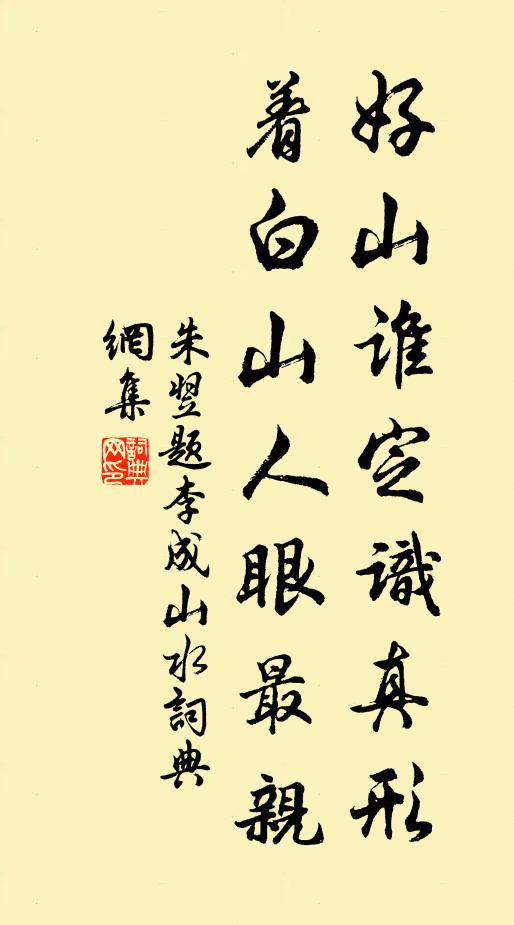 好山誰定識真形
着白山人眼最親
朱翌題李成山水詞典
網集
詞典
网印